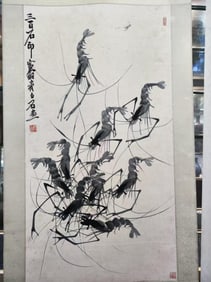 三百石印富翁齊白石畫